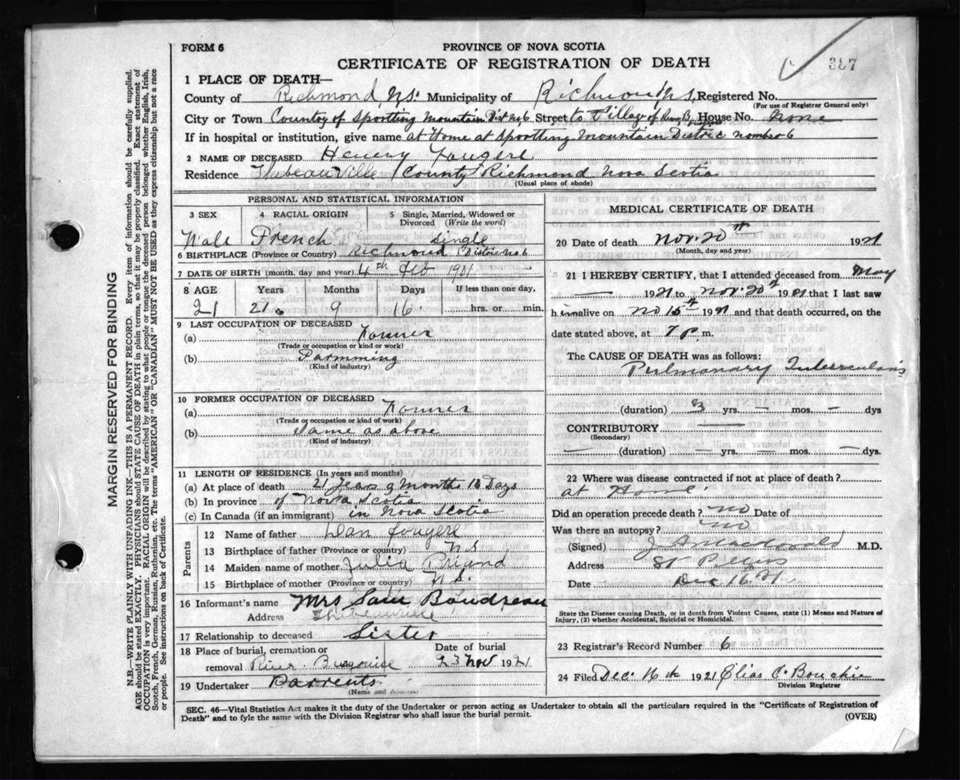 FORM 6
PROVINCE OF NOVA SCOTIA
CERTIFICATE OF REGISTRATION OF DEATH
387
1 PLACE OF DEATH—
County of Richmond, N.S. Municipality of Richmond N.S. Registered No.
(For use of Registrar General only)
City or Town County of Sportting Mountain Dist No 6 Street to Village of House No. none
If in hospital or institution, give name at Home at Sportting Mountain District number 6
2 NAME OF DECEASED Henery Fougere
Residence Thibeauville County Richmond Nova Scotia
(Usual place of abode)
PERSONAL AND STATISTICAL INFORMATION
3 SEX 4 RACIAL ORIGIN 5 Single, Married, Widowed or Divorced (Write the word)
Male French Single
6 BIRTHPLACE (Province or Country) Richmond District No 6
7 DATE OF BIRTH (month, day and year) 4th Feb 1901
8 AGE Years Months Days If less than one day,
21 21. 9 16 hrs. or min.
9 LAST OCCUPATION OF DECEASED
(a) Farmer
(Trade or occupation or kind or work)
(b) Farmming
(Kind of industry)
10 FORMER OCCUPATION OF DECEASED
(a) Farmer
(Trade or occupation or kind of work)
(b) Same as above
(Kind of industry)
11 LENGTH OF RESIDENCE (In years and months)
(a) At place of death 21 Years 9 Months 16 Days
(b) In province of Nova Scotia
(c) In Canada (if an immigrant) in Nova Scotia
Parents
12 Name of father Dan Fougere
13 Birthplace of father (Province or country) N S
14 Maiden name of mother Julia
15 Birthplace of mother (Province or country) N.S.
16 Informant's name Mrs Sam Boudreau
Address Thibeauville
17 Relationship to deceased Sister
18 Place of burial, cremation or removal River Burgoise Date of burial 23 Nov 1921
19 Undertaker Parrents
(Name and Address)
MEDICAL CERTIFICATE OF DEATH
20 Date of death Nov. 20th 1921
(Month, day and year)
21 I HEREBY CERTIFY, that I attended deceased from May
— 1921 to Nov. 20th 1921 that I last saw
h im alive on 1921 and that death occurred, on the
date stated above, at 7 p. m.
The CAUSE OF DEATH was as follows:
Pulmonary Tuberculosis
(duration) 3 yrs. — mos. — dys
CONTRIBUTORY
(Secondary)
— (duration) — yrs. — mos. — dys.
22 Where was disease contracted if not at place of death?
at Home.
Did an operation precede death? no Date of
Was there an autopsy? no
(Signed) J. A. Macdonald M.D.
Address St Peters
Date Dec 16 21
State the Disease causing Death, or in death from Violent Causes, state (1) Means and Nature of Injury, (2) whether Accidental, Suicidal or Homicidal.
23 Registrar's Record Number 6
24 Filed Dec. 16th 1921 Elias
Division Registrar
SEC. 46—Vital Statistics Act makes it the duty of the Undertaker or person acting as Undertaker to obtain all the particulars required in the "Certificate of Registration of
Death" and to fyle the same with the Division Registrar who shall issue the burial permit.
(OVER)
MARGIN RESERVED FOR BINDING
N.B.—WRITE PLAINLY WITH UNFADING INK—THIS IS A PERMANENT RECORD. Every item of information should be carefully supplied.
AGE should be stated EXACTLY. PHYSICIANS should STATE CAUSE OF DEATH in plain terms, so that it may be properly classified. Exact statement of
OCCUPATION is very important. RACIAL ORIGIN will be described by stating to what people or tongue the deceased person belonged whether English, Irish,
Scotch, French, German, Russian, Ruthenian, etc. The terms "AMERICAN" OR "CANADIAN" MUST NOT BE USED as they express citizenship but not a race
or people. See instructions on back of Certificate.